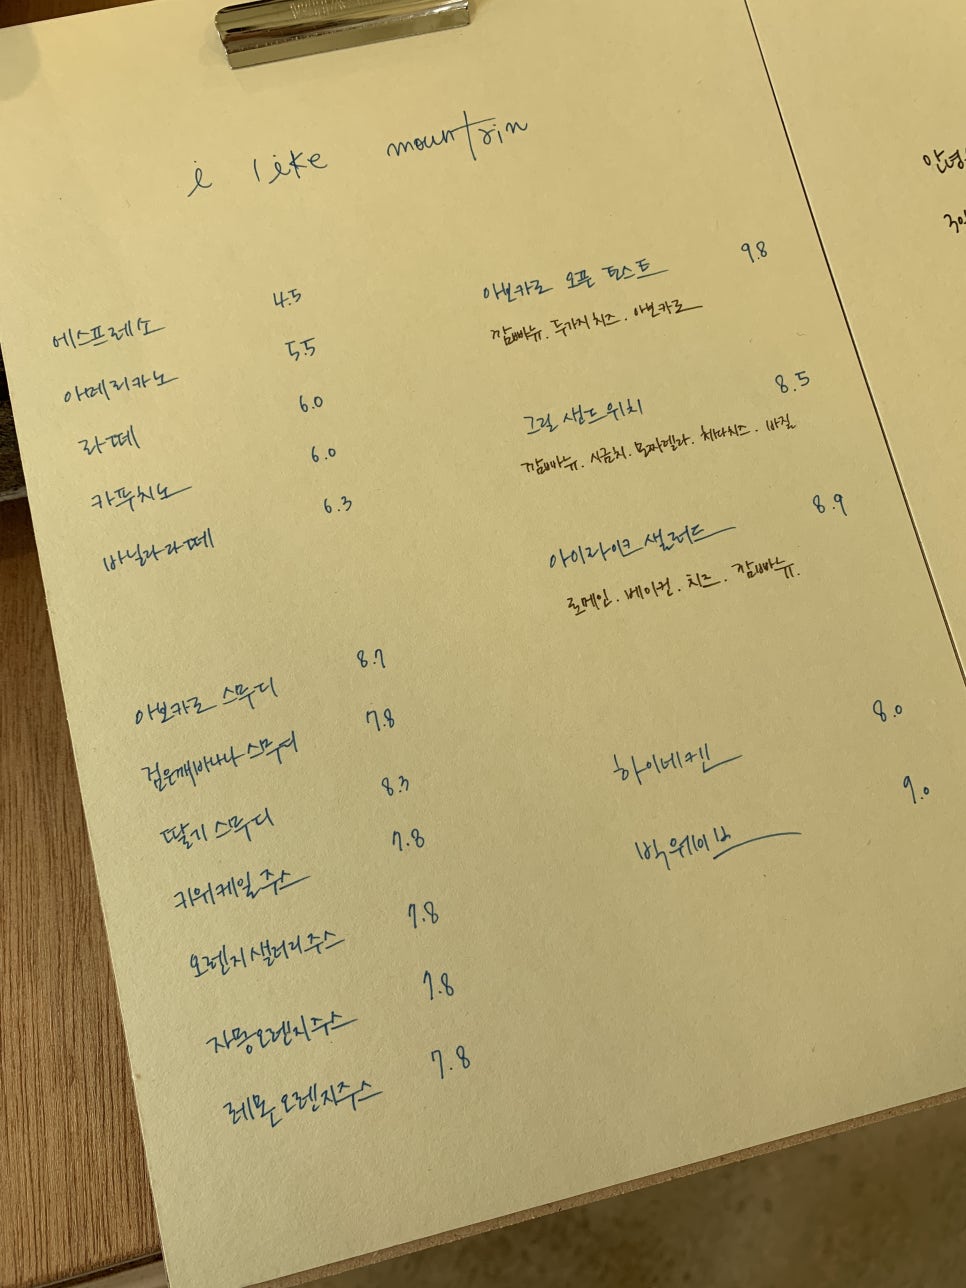 i like mountain
에스프레소 4.5
아메리카노 5.5
라떼 6.0
카푸치노 6.0
바닐라라떼 6.3
아보카도 스무디 8.7
검은깨바나나 스무디 7.8
딸기 스무디 8.3
키위케일주스 7.8
오렌지샐러리주스 7.8
자몽오렌지주스 7.8
레몬오렌지주스 7.8
아보카도 오픈 토스트 9.8
깜빠뉴. 두가지 치즈. 아보카도
그릴 샌드위치 8.5
깜빠뉴. 시금치. 모짜렐라. 체다치즈. 바질
아이라이크 샐러드 8.9
로메인. 베이컨. 치즈. 깜빠뉴.
하이네켄 8.0
빅웨이브 9.0
안녕